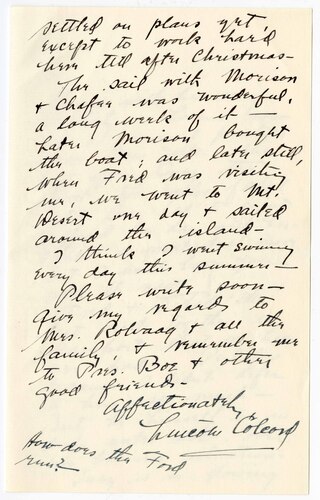 settled on plans yet,
except to work hard
here till after Christmas—
The sail with Morison
& Chafee was wonderful,
a long week of it—
Later Morison bought
the boat; and later still,
when Fred was visiting
me, we went to Mt.
Desert one day & sailed
around the island—
I think I went swimming
every day this summer—
Please write soon—
give my regards to
Mrs. Rolvaag & all the
family, & remember me
to Pres. Boe & other
good friends—
Affectionately,
Lincoln Colcord
How does the Ford
run?